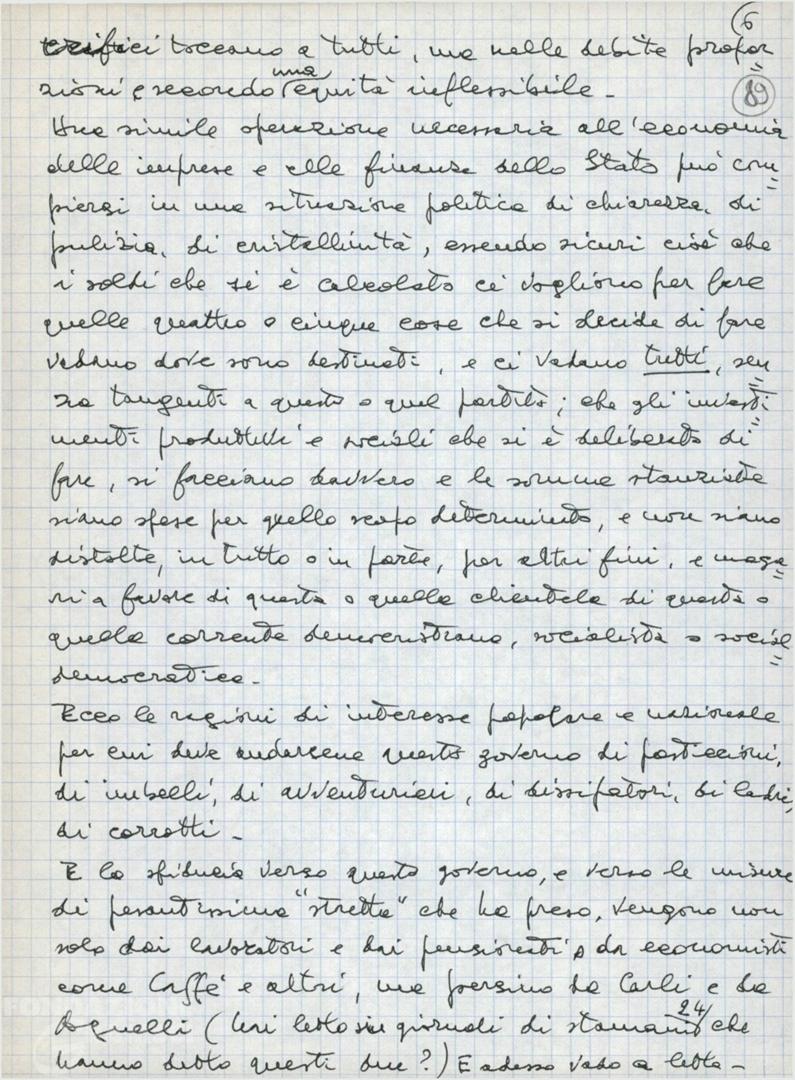 6
crifici toccano a tutti, ma nelle debite propor
89
zioni e secondo una equità inflessibile -
Una simile operazione necessaria all'economia
delle imprese e alle finanze dello Stato può com
piersi in una situazione politica di chiarezza, di
pulizia, di cristallinità, essendo sicuri cioè che
i soldi che si è calcolato ci vogliono per fare
quelle quattro o cinque cose che si decide di fare
vadano dove sono destinati, e ci vadano tutti, sen
za tangenti a questo o quel partito; che gli investi
menti produttivi e sociali che si è deliberato di
fare, si facciano davvero e le somme stanziate
siano spese per quello scopo determinato, e non siano
distolte, in tutto o in parte, per altri fini, e maga
ri a favore di questa o quella clientela di questa o
quella corrente democristiana, socialista o social
democratica -
Ecco le ragioni di interesse popolare e nazionale
per cui deve andarsene questo governo di pasticcioni,
di imbelli, di avventurieri, di dissipatori, di ladri,
di corrotti -
E la sfiducia verso questo governo, e verso le misure
di pesantissima "stretta" che ha preso, vengono non
solo dai lavoratori e dai pensionati, da economisti
come Caffè e altri, ma persino da Carli e da
Agnelli ( letto sui giornali di stamani 24/ che
hanno detto questi due?) E adesso vado a letto -